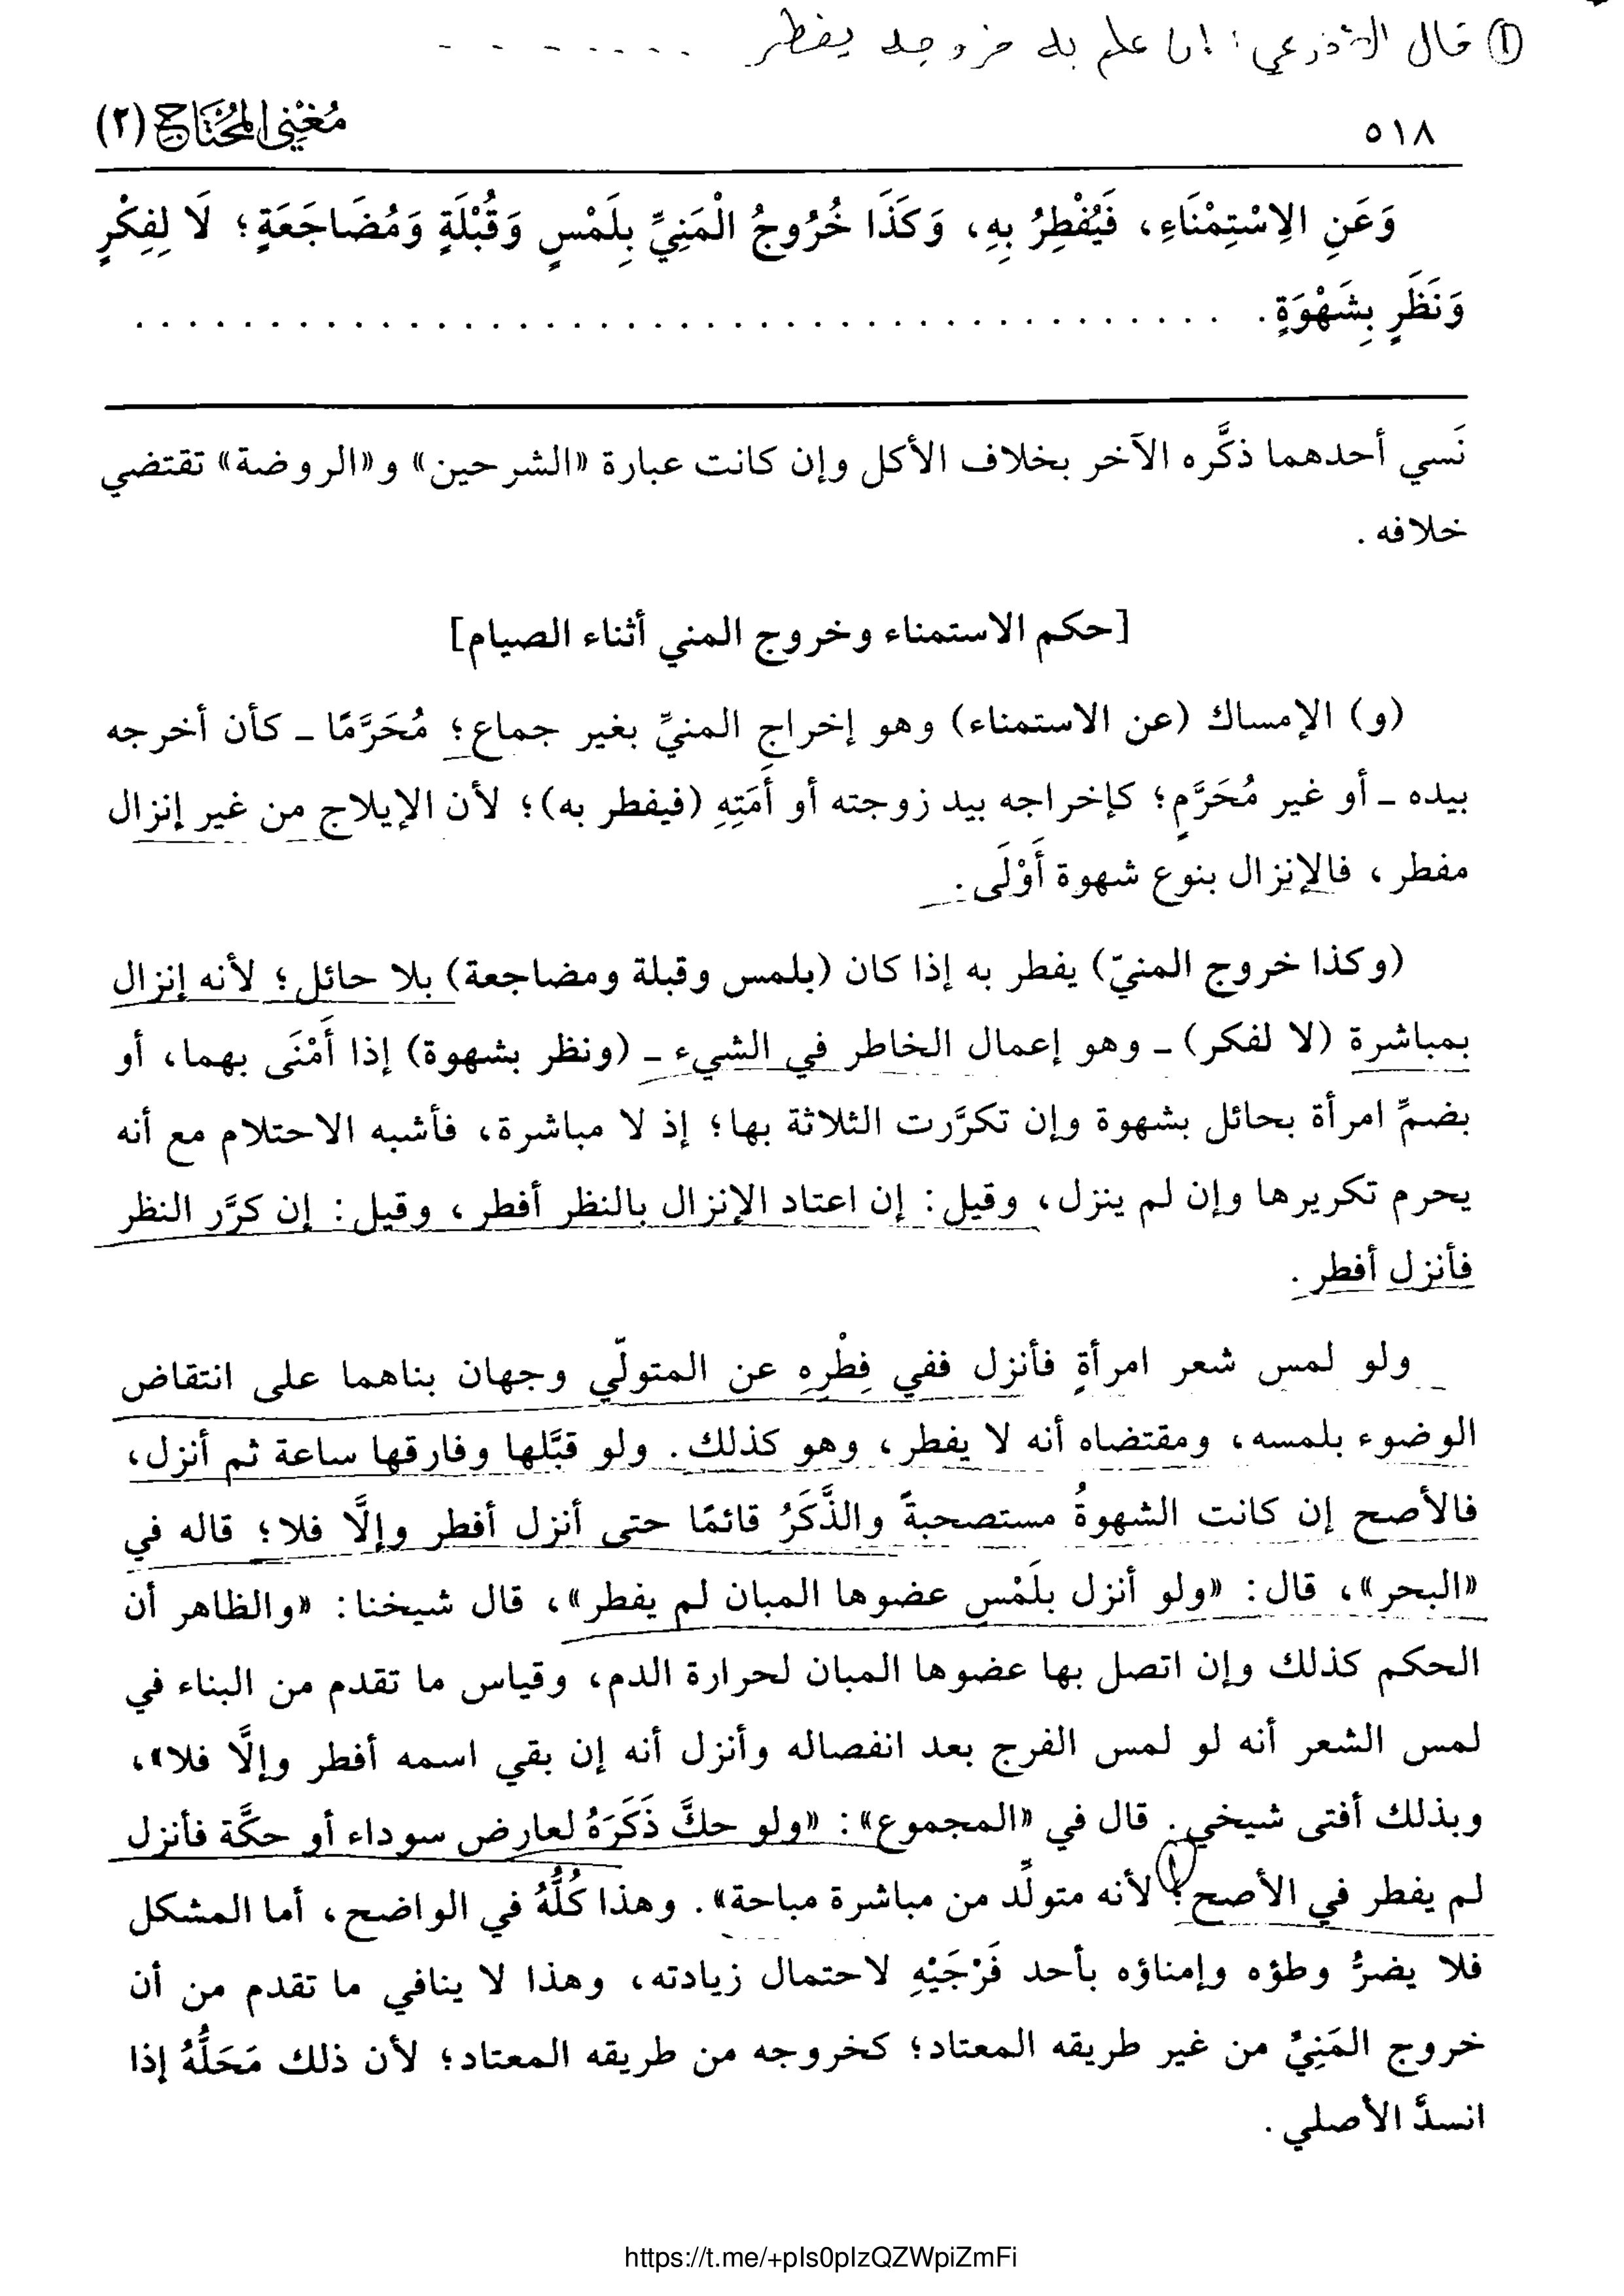 ① قال الأذرعي: إن علم به خروجه يفطر - - - - - - -
٥١٨ مُغْنِي المُحْتَاج (٢)
وَعَنِ الِاسْتِمْنَاءِ، فَيُفْطِرُ بِهِ، وَكَذَا خُرُوجُ الْمَنِيِّ بِلَمْسٍ وَقُبْلَةٍ وَمُضَاجَعَةٍ؛ لَا لِفِكْرٍ
وَنَظَرٍ بِشَهْوَةٍ. . . . . . . . . . . . . . . . . . . . . . . . . . . . . . . . . . . . . . . . . .
نَسي أحدهما ذكَّره الآخر بخلاف الأكل وإن كانت عبارة «الشرحين» و«الروضة» تقتضي
خلافه.
[حكم الاستمناء وخروج المني أثناء الصيام]
(و) الإمساك (عن الاستمناء) وهو إخراج المنيِّ بغير جماع؛ مُحَرَّمًا ـ كأن أخرجه
بيده ـ أو غير مُحَرَّمٍ؛ كإخراجه بيد زوجته أو أَمَتِهِ (فيفطر به)؛ لأن الإيلاج من غير إنزال
مفطر، فالإنزال بنوع شهوة أَوْلَى.
(وكذا خروج المنيّ) يفطر به إذا كان (بلمس وقبلة ومضاجعة) بلا حائل؛ لأنه إنزال
بمباشرة (لا لفكر) ـ وهو إعمال الخاطر في الشيء ـ (ونظر بشهوة) إذا أَمْنَى بهما، أو
بضمِّ امرأة بحائل بشهوة وإن تكرَّرت الثلاثة بها؛ إذ لا مباشرة، فأشبه الاحتلام مع أنه
يحرم تكريرها وإن لم ينزل، وقيل: إن اعتاد الإنزال بالنظر أفطر، وقيل: إن كرَّر النظر
فأنزل أفطر.
ولو لمس شعر امرأةٍ فأنزل ففي فِطْرِهِ عن المتولّي وجهان بناهما على انتقاض
الوضوء بلمسه، ومقتضاه أنه لا يفطر، وهو كذلك. ولو قبَّلها وفارقها ساعة ثم أنزل،
فالأصح إن كانت الشهوةُ مستصحبةً والذَّكَرُ قائمًا حتى أنزل أفطر وإلَّا فلا؛ قاله في
«البحر»، قال: «ولو أنزل بلَمْسِ عضوها المبان لم يفطر»، قال شيخنا: «والظاهر أن
الحكم كذلك وإن اتصل بها عضوها المبان لحرارة الدم، وقياس ما تقدم من البناء في
لمس الشعر أنه لو لمس الفرج بعد انفصاله وأنزل أنه إن بقي اسمه أفطر وإلَّا فلا»،
وبذلك أفتى شيخي. قال في «المجموع»: «ولو حكَّ ذَكَرَهُ لعارض سوداء أو حكَّة فأنزل
لم يفطر في الأصح؛ ① لأنه متولِّد من مباشرة مباحة». وهذا كُلُّهُ في الواضح، أما المشكل
فلا يضرُّ وطؤه وإمناؤه بأحد فَرْجَيْهِ لاحتمال زيادته، وهذا لا ينافي ما تقدم من أن
خروج المَنِيِّ من غير طريقه المعتاد؛ كخروجه من طريقه المعتاد؛ لأن ذلك مَحَلُّهُ إذا
انسدَّ الأصلي.
https://t.me/+pIs0pIzQZWpiZmFi